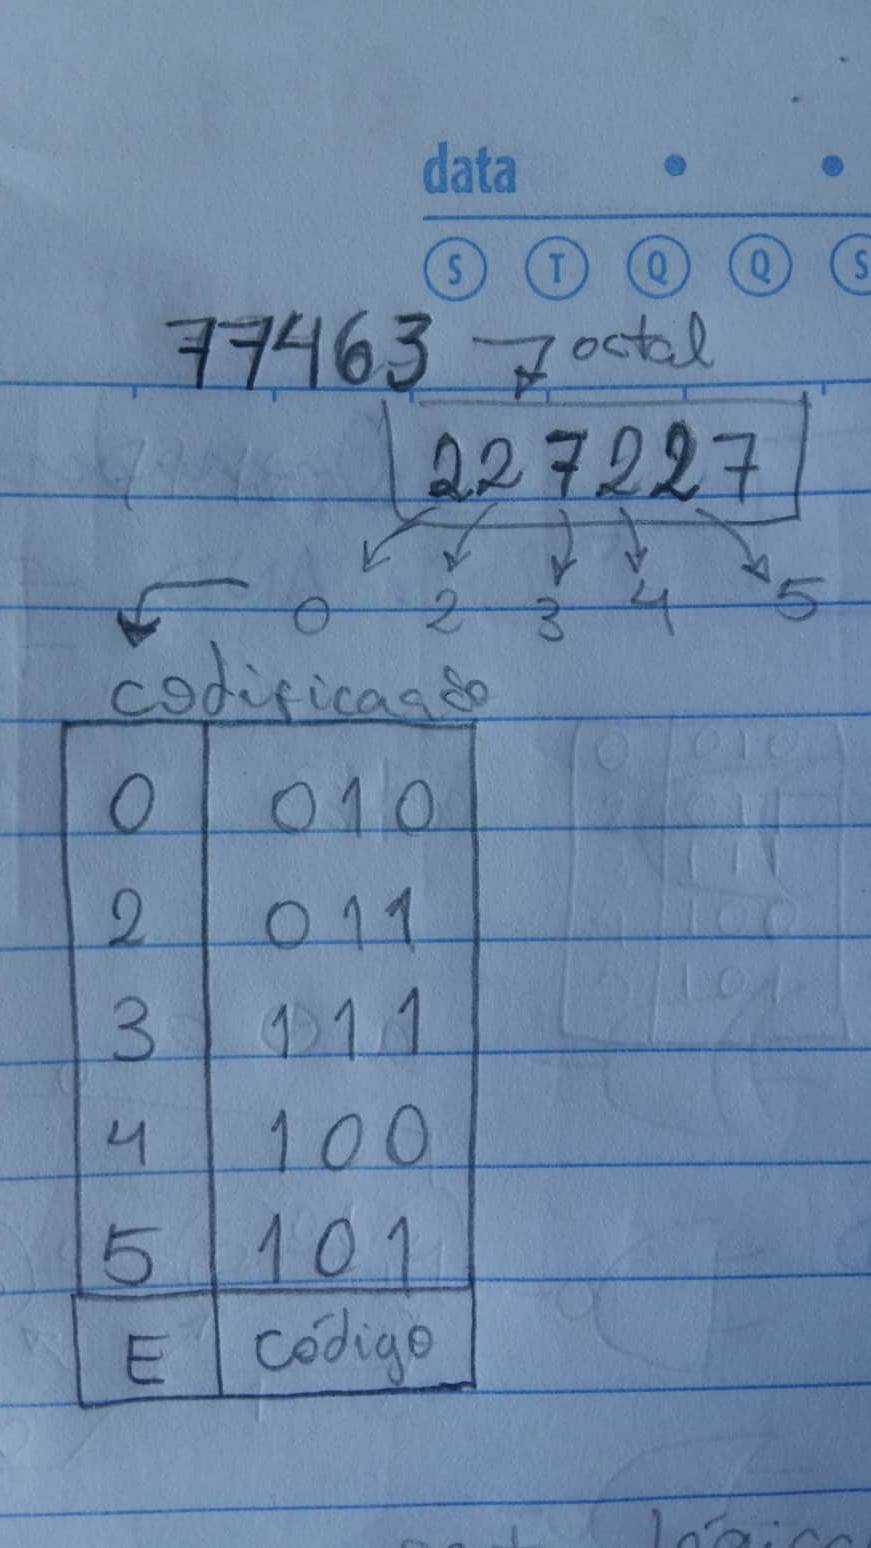 data
S T Q Q S
77463 → octal
227227
0 2 3 4 5
codificação
0 010
2 011
3 111
4 100
5 101
E código